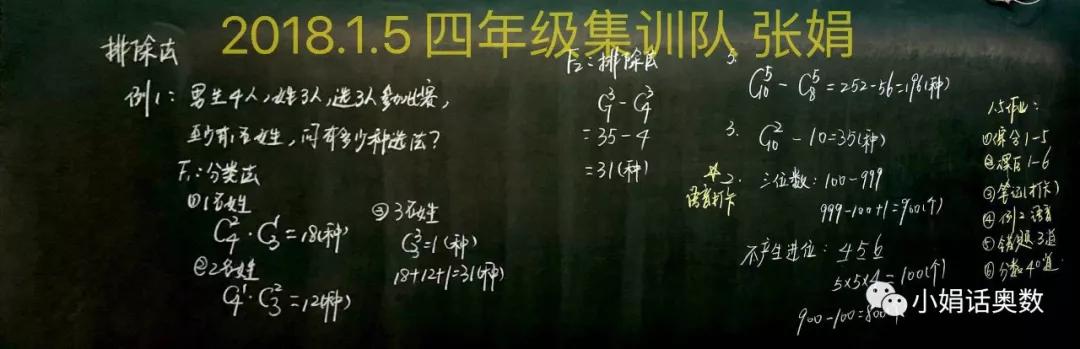 2018.1.5 四年级集训队 张娟
排除法
例1：男生4人，女生3人，选3人参加比赛，
至少有1名女生，问有多少种选法？
F₁：分类法
①1名女生
C₄²·C₃¹=18(种)
②2名女生
C₄¹·C₃²=12(种)
③3名女生
C₃³=1(种)
18+12+1=31(种)
F₂：排除法
C₇³-C₄³
=35-4
=31(种)
C₁₀⁵-C₈⁵=252-56=196(种)
3.
C₁₀²-10=35(种)
☆2.
语言打卡
三位数：100-999
999-100+1=900(个)
不产生进位：456
5×5×4=100(个)
900-100=800
1.5作业：
①综合1-5
②课后1-6
③笔记(打卡)
④例2语言
⑤错题3道
⑥分数40道
小娟话奥数